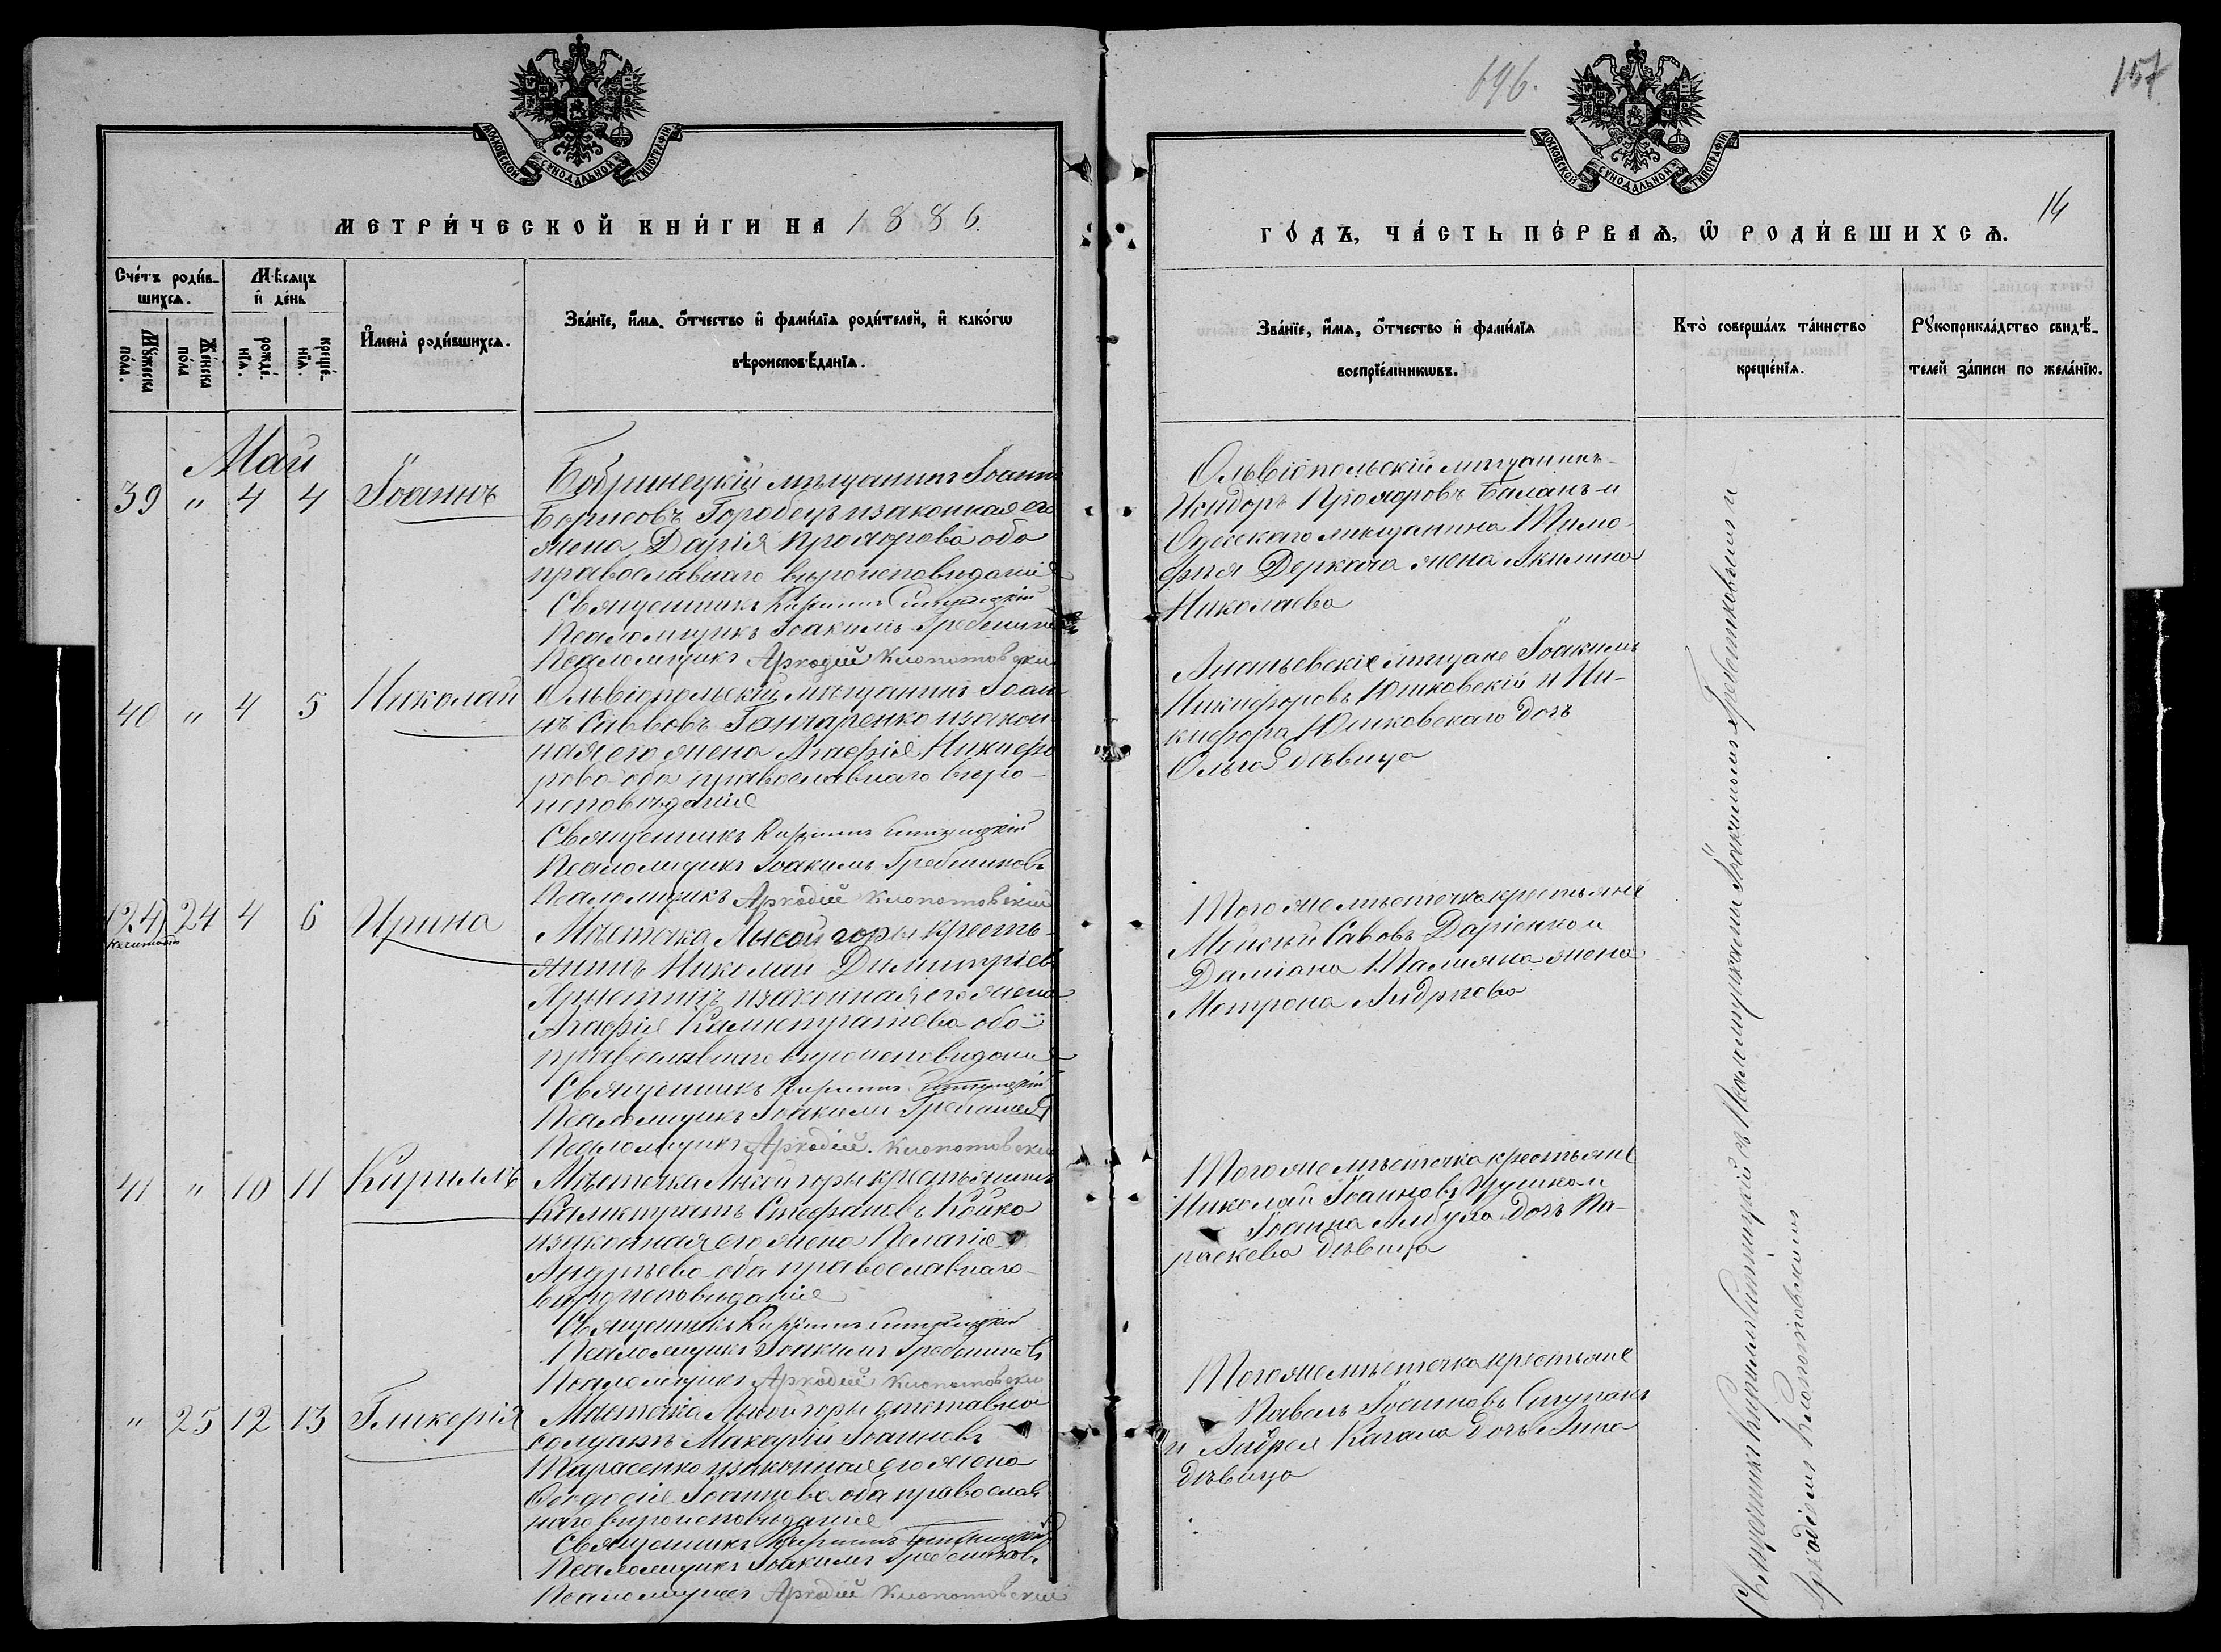 МОСКОВСКОЙ СѴНОДАЛЬНОЙ ТИПОГРАФІИ
МЕТРИ́ЧЕСКОЙ КНИ́ГИ НА 1886.
Сче́тъ роди́в-
шихсѧ.
М҄ѣсѧцъ
и҆ де́нь
И҆мена̀ роди́вшихсѧ.
Зва́нїе, и҆́мѧ, ѻ҆́тчество и҆ фами́лїѧ роди́телей, и҆ како́гѡ
вѣроисповѣ́данїѧ.
Мꙋ́жеска
по́ла.
Же́нска
по́ла
рожде́-
нїѧ.
креще́-
нїѧ.
Май
39 " 4 4 Іоаннъ
Бобринецкій мѣщанинъ Іоаннъ
Борисовъ Городецъ и законная его
жена Дарія Прохорова оба
православнаго вѣроисповѣданія
Священникъ Кириллъ
Псаломщикъ Іоакимъ Гребениковъ
Псаломщикъ Аркадій Клопотовскій
40 " 4 5 Николай
Ольвіопольскій мѣщанинъ Іоан-
нъ Саввовъ Гончаренко и закон
ная его жена Агафія Никифо
рова оба православнаго вѣро-
исповѣданія
Священникъ Кириллъ
Псаломщикъ Іоакимъ Гребениковъ
Псаломщикъ Аркадій Клопотовскій
(24) 24 4 6 Ирина
Мѣстечка Лысой горы кресть-
янинъ Николай Димитріевъ
и законная его жена
Агафія Каллистратіева оба
православнаго вѣроисповѣданія
Священникъ Кириллъ
Псаломщикъ Іоакимъ Гребениковъ
Псаломщикъ Аркадій Клопотовскій
41 " 10 11 Кириллъ
Мѣстечка Лысой горы крестьянинъ
Каллистратъ Стефановъ Койко
и законная его жена Пелагія
Андреева оба православнаго
вѣроисповѣданія
Священникъ Кириллъ
Псаломщикъ Іоакимъ Гребениковъ
Псаломщикъ Аркадій Клопотовскій
" 25 12 13 Гликерія
Мѣстечка Лысой горы отставной
солдатъ Макарій Іоанновъ
Тарасенко и законная его жена
Феодосія Іоаннова оба православ
наго вѣроисповѣданія
Священникъ Кириллъ
Псаломщикъ Іоакимъ Гребениковъ
Псаломщикъ Аркадій Клопотовскій
696.
157
14
МОСКОВСКОЙ СѴНОДАЛЬНОЙ ТИПОГРАФІИ
ГО́ДЪ, ЧА́СТЬ ПЕ́РВАѦ, Ѡ҆ РОДИ́ВШИХСѦ.
Зва́нїе, и҆́мѧ, ѻ҆́тчество и҆ фами́лїѧ
воспрїе́мникѡвъ.
Кто̀ соверша́лъ та́инство
креще́нїѧ.
Рꙋкоприкла́дство свидѣ́-
телей за́писи по жела́нїю.
Ольвіопольскій мѣщанинъ
Исидоръ Прохоровъ Баланъ и
Одесскаго мѣщанина Тимо-
фея Деркача жена Акилина
Николаева
Ананьевскіе мѣщане Іоакимъ
Никифоровъ Юшковскій и Ни-
кифора Юшковскаго дочь
Ольга дѣвица
Того же мѣстечка крестьяне
Моисей Савовъ Даріенко и
Даміана жена
Мотрона Андреева
Того же мѣстечка крестьяне
Николай Іоанновъ и
Іоанна дочь Па-
раскева дѣвица
Того же мѣстечка крестьяне
Павелъ Іоанновъ Ступакъ
и Андрея Качала дочь Анна
дѣвица
Священникъ Кириллъ съ Псаломщиками Іоакимомъ Гребениковымъ и
Аркадіемъ Клопотовскимъ